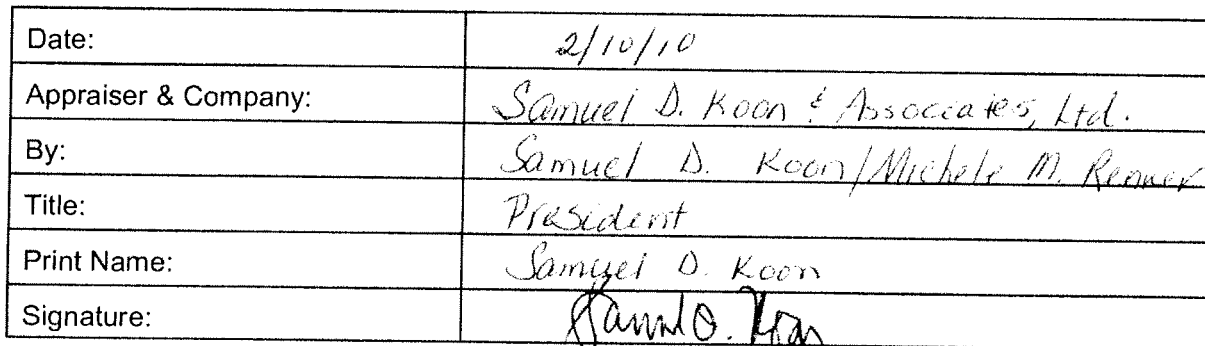 Date: 2/10/10
Appraiser & Company: Samuel D. Koon & Associates, Ltd.
By: Samuel D. Koon/Michele M. Renner
Title: President
Print Name: Samuel D. Koon
Signature: Samuel D. Koon